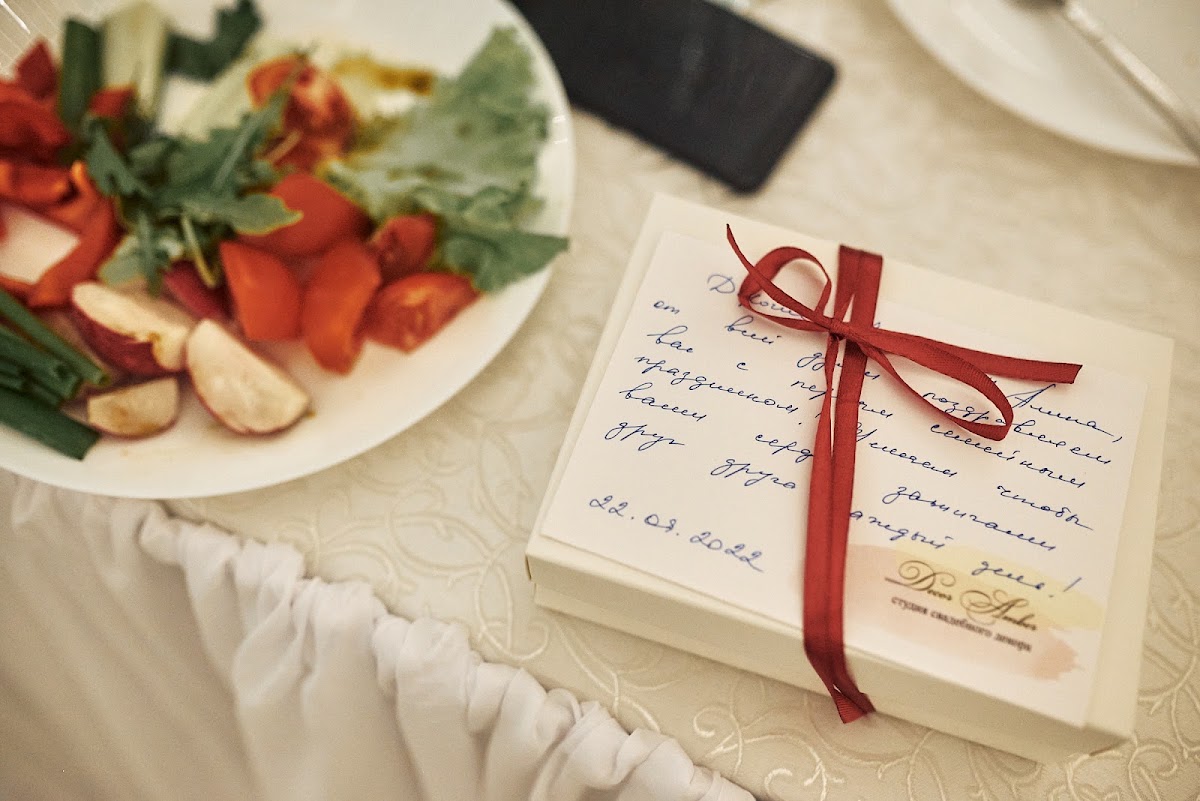 Алина,
от всей души поздравляем
вас с первым семейным
праздником! Желаем чтобы
ваши сердца зажигали
друг друга каждый
день!
22.09.2022
Decor Amber
студия свадебного декора